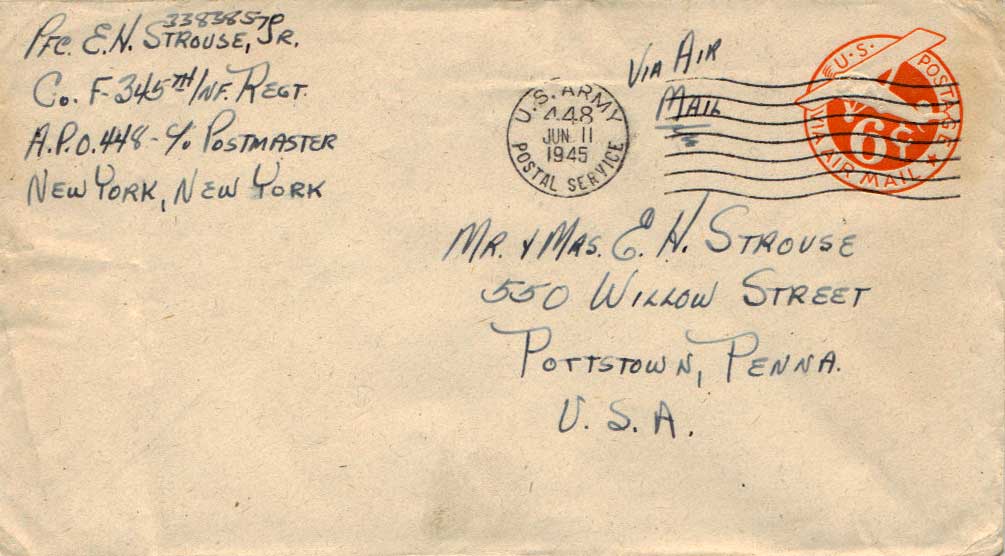 33838570
Pfc. E.H. Strouse, Jr.
Co. F-345TH/Inf. Regt.
A.P.O. 448 - c/o Postmaster
New York, New York
Via Air
Mail
U.S. ARMY
448
JUN 11
1945
POSTAL SERVICE
U.S. POSTAGE
6¢
VIA AIR MAIL
Mr. & Mrs. E. H. Strouse
550 Willow Street
Pottstown, Penna.
U. S. A.